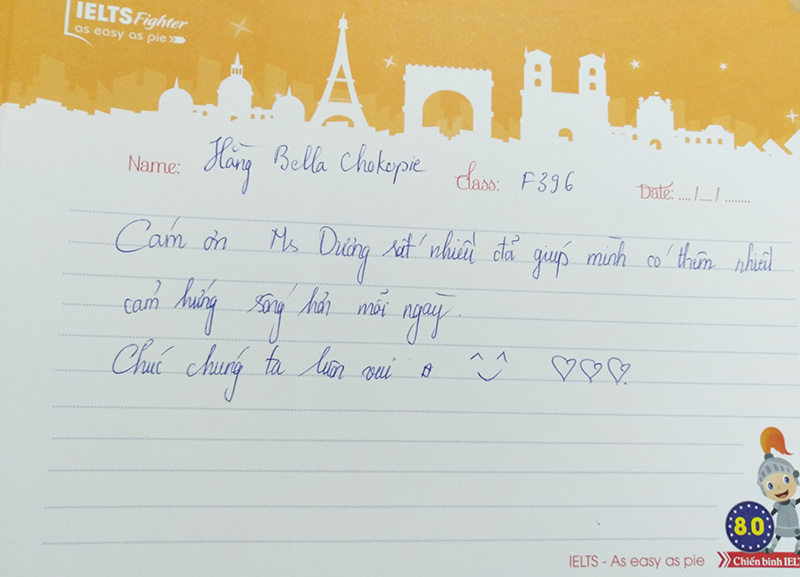 IELTS Fighter
as easy as pie
Name: Hằng Bella Chokopie Class: F396 Date: ..../..../........
Cám ơn Ms Dương rất nhiều đã giúp mình có thêm nhiều
cảm hứng sống hơn mỗi ngày.
Chúc chúng ta luôn vui
8.0
IELTS - As easy as pie Chiến binh IELT